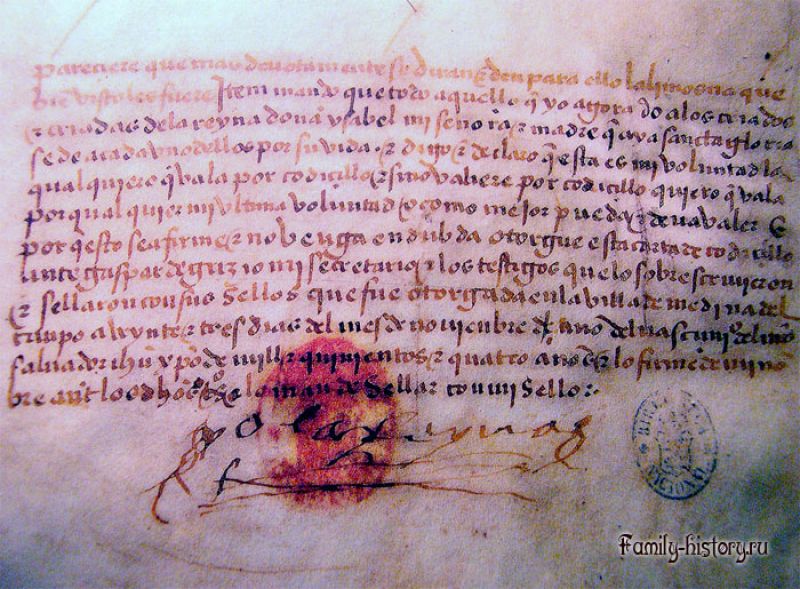 pareciere que mas devotamente se diran & den para ello la limosna que
bien visto les fuere Item mando que todo aquello q̃ yo agora do alos criados
& criadas dela reyna doña ysabel mi señora & madre q̃ aya santa gloria
se de a cada uno dellos por su vida & digo & declaro q̃ esta es mi voluntad lo
qual quiero q̃ vala por codicillo & si no valiere por codicillo quiero q̃ vala
por qual quier mi ultima voluntad o como mejor pueda & deva valer &
por q̃ esto sea firme & no venga en dubda otorgue esta carta de codicillo
ante gaspar de grizio mi secretario & los testigos que lo sobrescrivieron
& sellaron con sus sellos que fue otorgada en la villa de medina del
campo a veynte & tres dias del mes de noviembre año del nascimi͂o del ñro
salvador ihũ xp̃o de mill & quinientos & quatro años & lo firme de mi nõ
bre ant los dhos tºs & lo mande sellar con mi sello:
yo la Reyna
BIBLIOTECA NACIONAL
Family-history.ru